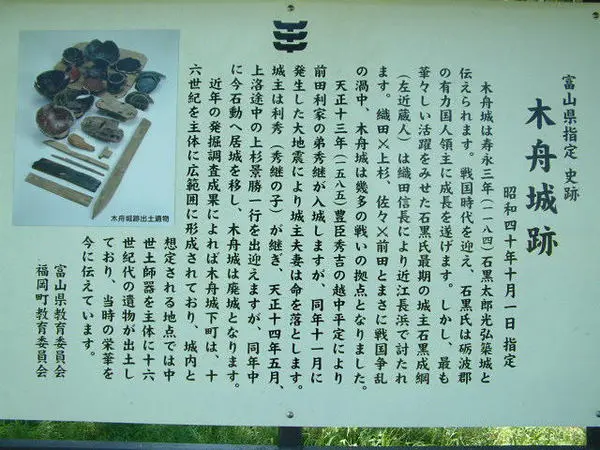 富山県指定 史跡
木舟城跡
昭和四十年十月一日 指定
木舟城は寿永三年(一一八四)石黒太郎光弘築城と
伝えられます。戦国時代を迎え、石黒氏は砺波郡
の有力国人領主に成長を遂げます。しかし、最も
華々しい活躍をみせた石黒氏最期の城主石黒成綱
(左近蔵人)は織田信長により近江長浜で討たれ
ます。織田×上杉、佐々×前田とまさに戦国争乱
の渦中、木舟城は幾多の戦いの拠点となりました。
天正十三年(一五八五)豊臣秀吉の越中平定により
前田利家の弟秀継が入城しますが、同年十一月に
発生した大地震により城主夫妻は命を落とします。
城主は利秀(秀継の子)が継ぎ、天正十四年五月、
上洛途中の上杉景勝一行を出迎えますが、同年中
に今石動へ居城を移し、木舟城は廃城となります。
近年の発掘調査成果によれば木舟城下町は、十
六世紀を主体に広範囲に形成されており、城内と
想定される地点では中
世土師器を主体に十六
世紀代の遺物が出土し
ており、当時の栄華を
今に伝えています。
富山県教育委員会
福岡町教育委員会
木舟城跡出土遺物